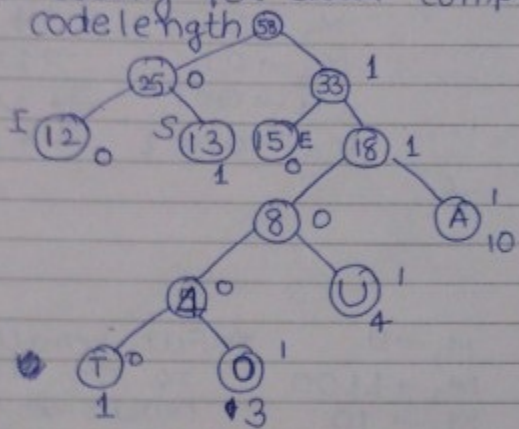 comp
codelength 58
25 0 33 1
I 12 0 S 13 1 15 E 0 18 1
8 0 A 1 10
4 0 U 1 4
T 0 1 O 1 3